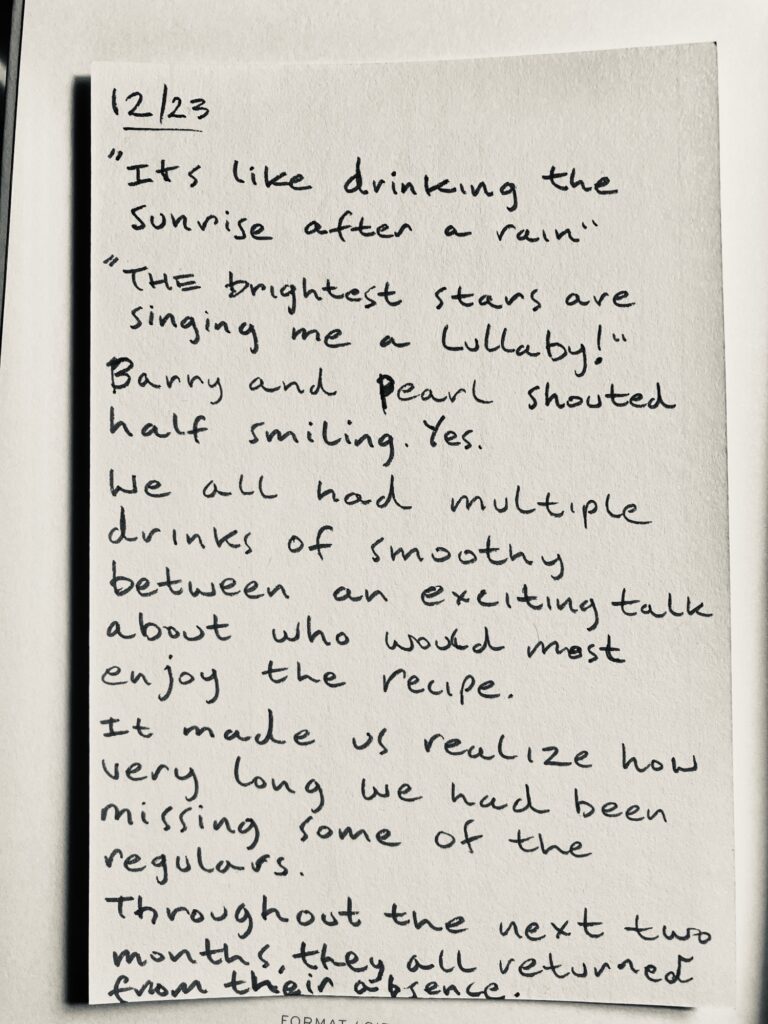 12/23
"Its like drinking the
sunrise after a rain"
"THE brightest stars are
singing me a Lullaby!"
Barry and Pearl shouted
half smiling. Yes.
We all had multiple
drinks of smoothy
between an exciting talk
about who would most
enjoy the recipe.
It made us realize how
very long we had been
missing some of the
regulars.
Throughout the next two
months, they all returned
from their absence.
FORMAT /